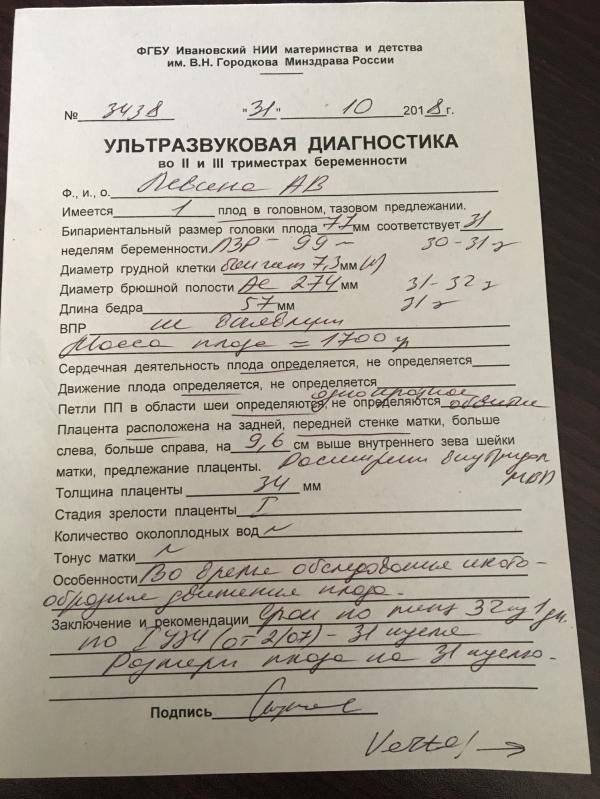 ФГБУ Ивановский НИИ материнства и детства
им. В.Н. Городкова Минздрава России
№ 3438 "31" 10 2018г.
УЛЬТРАЗВУКОВАЯ ДИАГНОСТИКА
во II и III триместрах беременности
Ф., и., о. Левина АВ
Имеется 1 плод в головном, тазовом предлежании.
Бипариентальный размер головки плода 77 мм соответствует 31
неделям беременности ЛЗР - 99 30-31
Диаметр грудной клетки 7,3 мм (N)
Диаметр брюшной полости АС 274 мм 31-32
Длина бедра 57 мм 31
ВПР не выявлены
Масса плода = 1700 г
Сердечная деятельность плода определяется, не определяется
Движение плода определяется, не определяется
Петли ПП в области шеи определяются, не определяются однократное обвитие
Плацента расположена на задней, передней стенке матки, больше
слева, больше справа, на 9,6 см выше внутреннего зева шейки
матки, предлежание плаценты. Расширены МВП
Толщина плаценты 34 мм
Стадия зрелости плаценты I
Количество околоплодных вод N
Тонус матки N
Особенности Во время обследования
движения плода.
Заключение и рекомендации Срок по 32 1 дн.
по I УЗИ (от 2/07) - 31 неделя
Размеры плода на 31 неделю.
Подпись